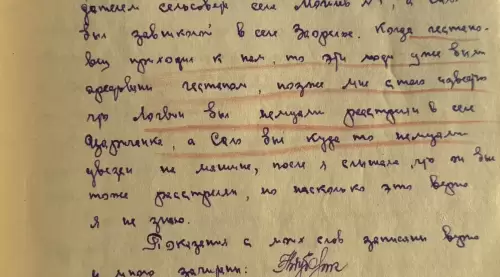 дателем сельсовета села
был завшколой в селе Заозерье. Когда гестапо-
вец приходил к нам, то эти люди уже были
арестованы гестапом, позже мне стало известно
что Логвин был немцами расстрелян в селе
а Сало был куда то немцами
увезен на машине, после я слышала, что он был
тоже расстрелян, но насколько это верно
я не знаю.
Показания с моих слов записаны верно
и мною зачитаны: